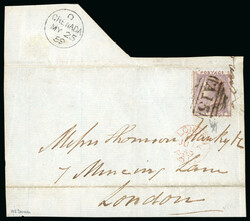 GRENADA
MY 25
POSTAGE
A15
Messrs Thomson Hankey & Co
7 Mincing Lane
London